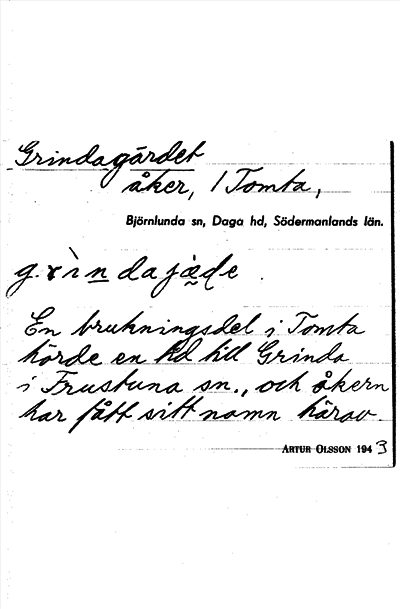 Grindagärdet
åker, 1 Tomta,
Björnlunda sn, Daga hd, Södermanlands län.
En brukningsdel i Tomta
hörde en tid till Grinda
i Frustuna sn., och åkern
har fått sitt namn härav.
ARTUR OLSSON 1943